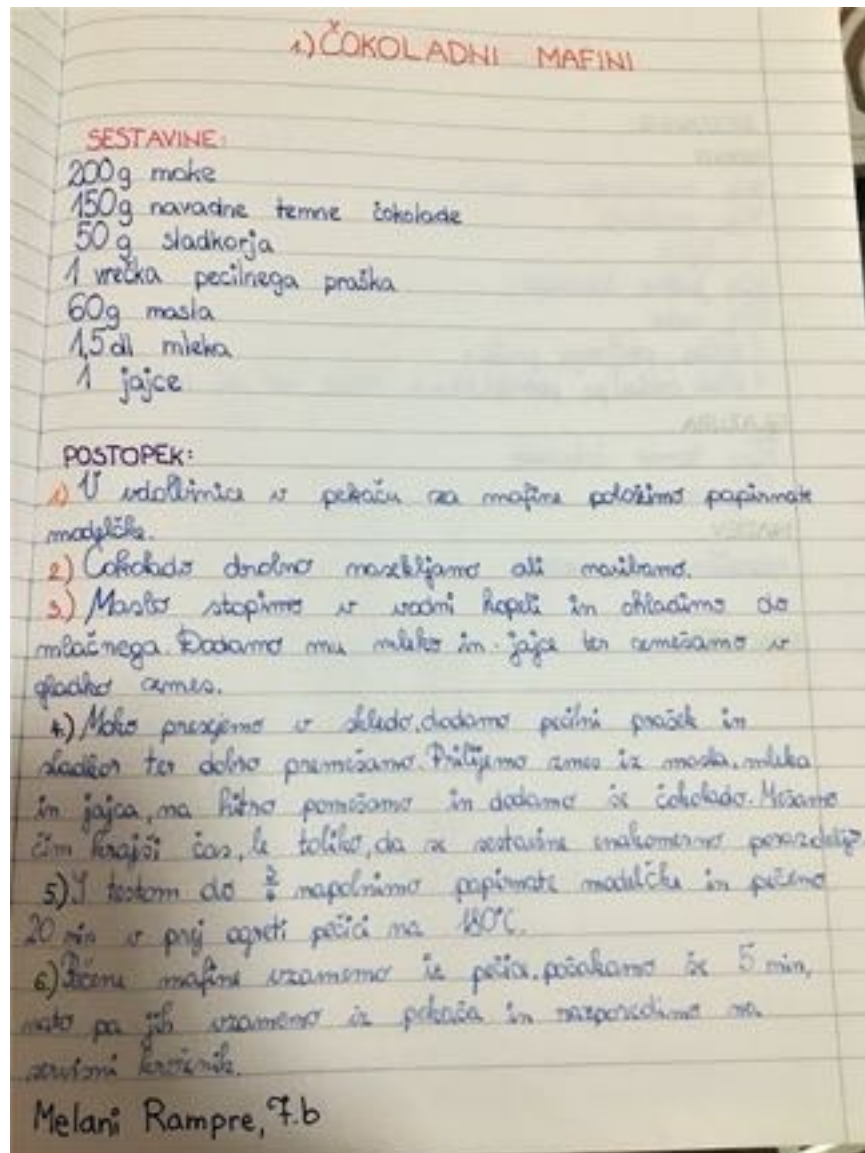 1.) ČOKOLADNI MAFINI
SESTAVINE:
200g moke
150g navadne temne čokolade
50 g sladkorja
1 vrečka pecilnega praška
60g masla
1,5 dl mleka
1 jajce
POSTOPEK:
1) V vdolbinice v pekaču za mafine položimo papirnate
modelčke.
2) Čokolado drobno nasekljamo ali naribamo.
3.) Maslo stopimo v vodni kopeli in ohladimo do
mlačnega. Dodamo mu mleko in jajce ter zmešamo v
gladko zmes.
4.) Moko presejemo v skledo, dodamo pecilni prašek in
sladkor ter dobro premešamo. Prilijemo zmes iz masla, mleka
in jajca, na hitro pomešamo in dodamo še čokolado. Mešamo
čim krajši čas, le toliko, da se sestavine enakomerno porazdelijo.
5) S testom do napolnimo papirnate modelčke in pečemo
20 min v prej ogreti pečici na 180°C.
6) Pečene mafine vzamemo iz pečice, počakamo še 5 min,
nato pa jih vzamemo iz pekača in razporedimo na
servirni krožnik.
Melani Rampre, 7.b